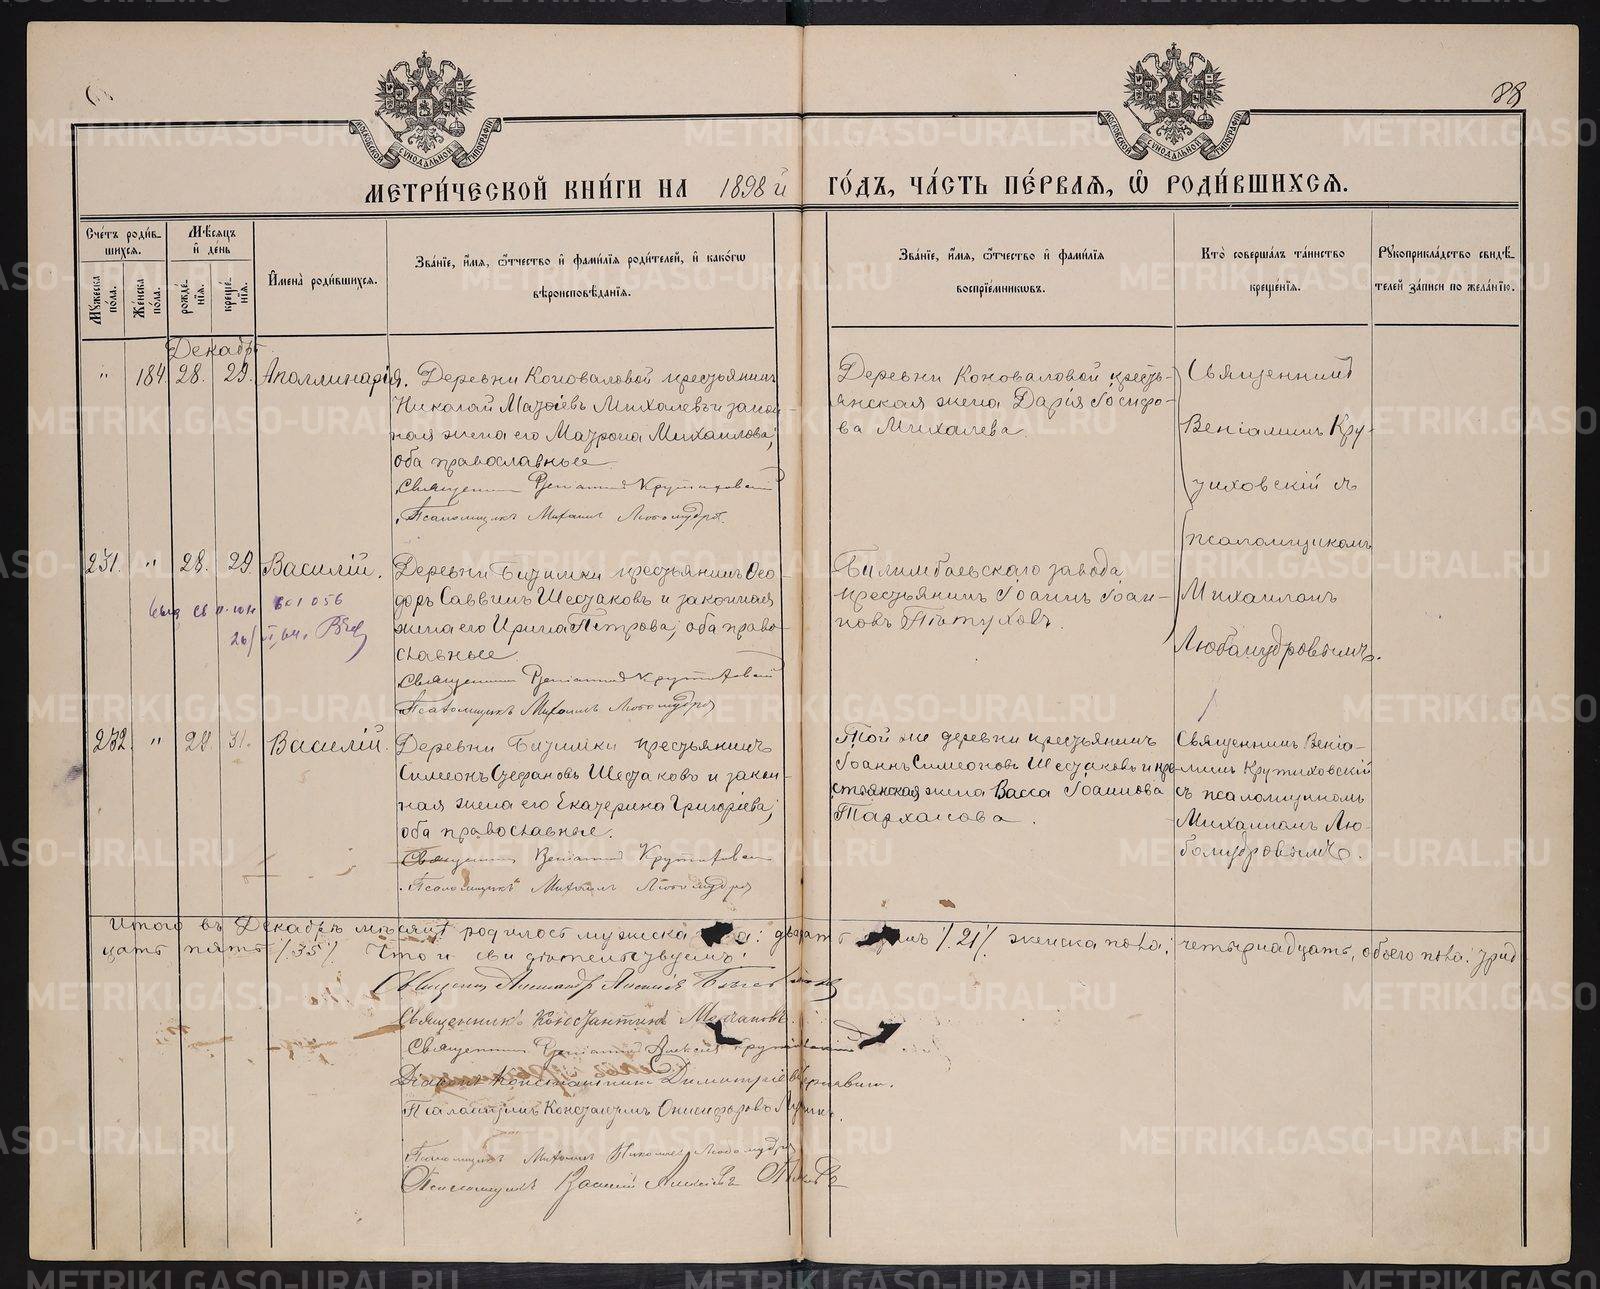 88
МОСКОВСКОЙ СѴНОДАЛЬНОЙ ТИПОГРАФІИ
МОСКОВСКОЙ СѴНОДАЛЬНОЙ ТИПОГРАФІИ
МЕТРИ́ЧЕСКОЙ КНИ́ГИ НА 1898 й ГО́ДЪ, ЧА́СТЬ ПЕ́РВАЯ, Ѽ РОДИ́ВШИХСЯ.
Сче́тъ роди́в-
шихся.
Мѣ́сяцъ
и҆ де́нь
Мꙋ́жеска по́ла.
Же́нска по́ла.
рожде́-нїѧ.
креще́-нїѧ.
И҆мена̀ роди́вшихся.
Зва́нїе, и҆́мя, ѻ҆́тчество и҆ фамі́лїя роди́телей, и҆ како́гѡ
вѣроисповѣ́данїя.
Зва́нїе, и҆́мя, ѻ҆́тчество и҆ фамі́лїя
воспрїе́мникѡвъ.
Кто̀ соверша́лъ та́инство
креще́нїя.
Рꙋкоприкла́дство свидѣ́-
телей за́писи по жела́нїю.
Декабрь
" 184. 28. 29. Аполлинарія. Деревни Коноваловой крестьянинъ
Николай Матѳіевъ Михалевъ и закон-
ная жена его Матрона Михаилова;
оба православные.
Священникъ Веніаминъ Крутиховскій
Псаломщикъ Михаилъ Любомудровъ
Деревни Коноваловой кресть-
янская жена Дарія Іосифо-
ва Михалева.
Священникъ
Веніаминъ Кру-
тиховскій съ
псаломщикомъ
Михаиломъ
Любомудровымъ.
231. " 28. 29. Василій. Деревни Битимки крестьянинъ Ѳео-
доръ Саввинъ Шестаковъ и законная
жена его Ирина Петрова; оба право-
славные.
Священникъ Веніаминъ Крутиховскій
Псаломщикъ Михаилъ Любомудровъ
Билимбаевскаго завода
крестьянинъ Іоаннъ Іоан-
новъ Пѣтуховъ.
232. " 29. 31. Василій. Деревни Битимки крестьянинъ
Симеонъ Стефановъ Шестаковъ и закон-
ная жена его Екатерина Григоріева;
оба православные.
Священникъ Веніаминъ Крутиховскій
Псаломщикъ Михаилъ Любомудровъ
Той же деревни крестьянинъ
Іоаннъ Симеоновъ Шестаковъ и кре-
стьянская жена Васса Іоаннова
Тарханова.
Священникъ Веніа-
минъ Крутиховскій
съ псаломщикомъ
Михаиломъ Лю-
бомудровымъ.
Итого въ Декабрѣ мѣсяцѣ родилось мужеска : двадцать одинъ /.21/. женска пола: четырнадцать, обоего пола: трид-
цать пять /.35/. Что и свидѣтельствуемъ:
Священникъ Александръ Алексіевъ
Священникъ Константинъ Молчановъ.
Священникъ Веніаминъ Алексіевъ Крутиховскій
Діаконъ Константинъ Димитріевъ
Псаломщикъ Константинъ Онисифоровъ
Псаломщикъ Михаилъ Николаевъ Любомудровъ
Псаломщикъ Василій Алексіевъ